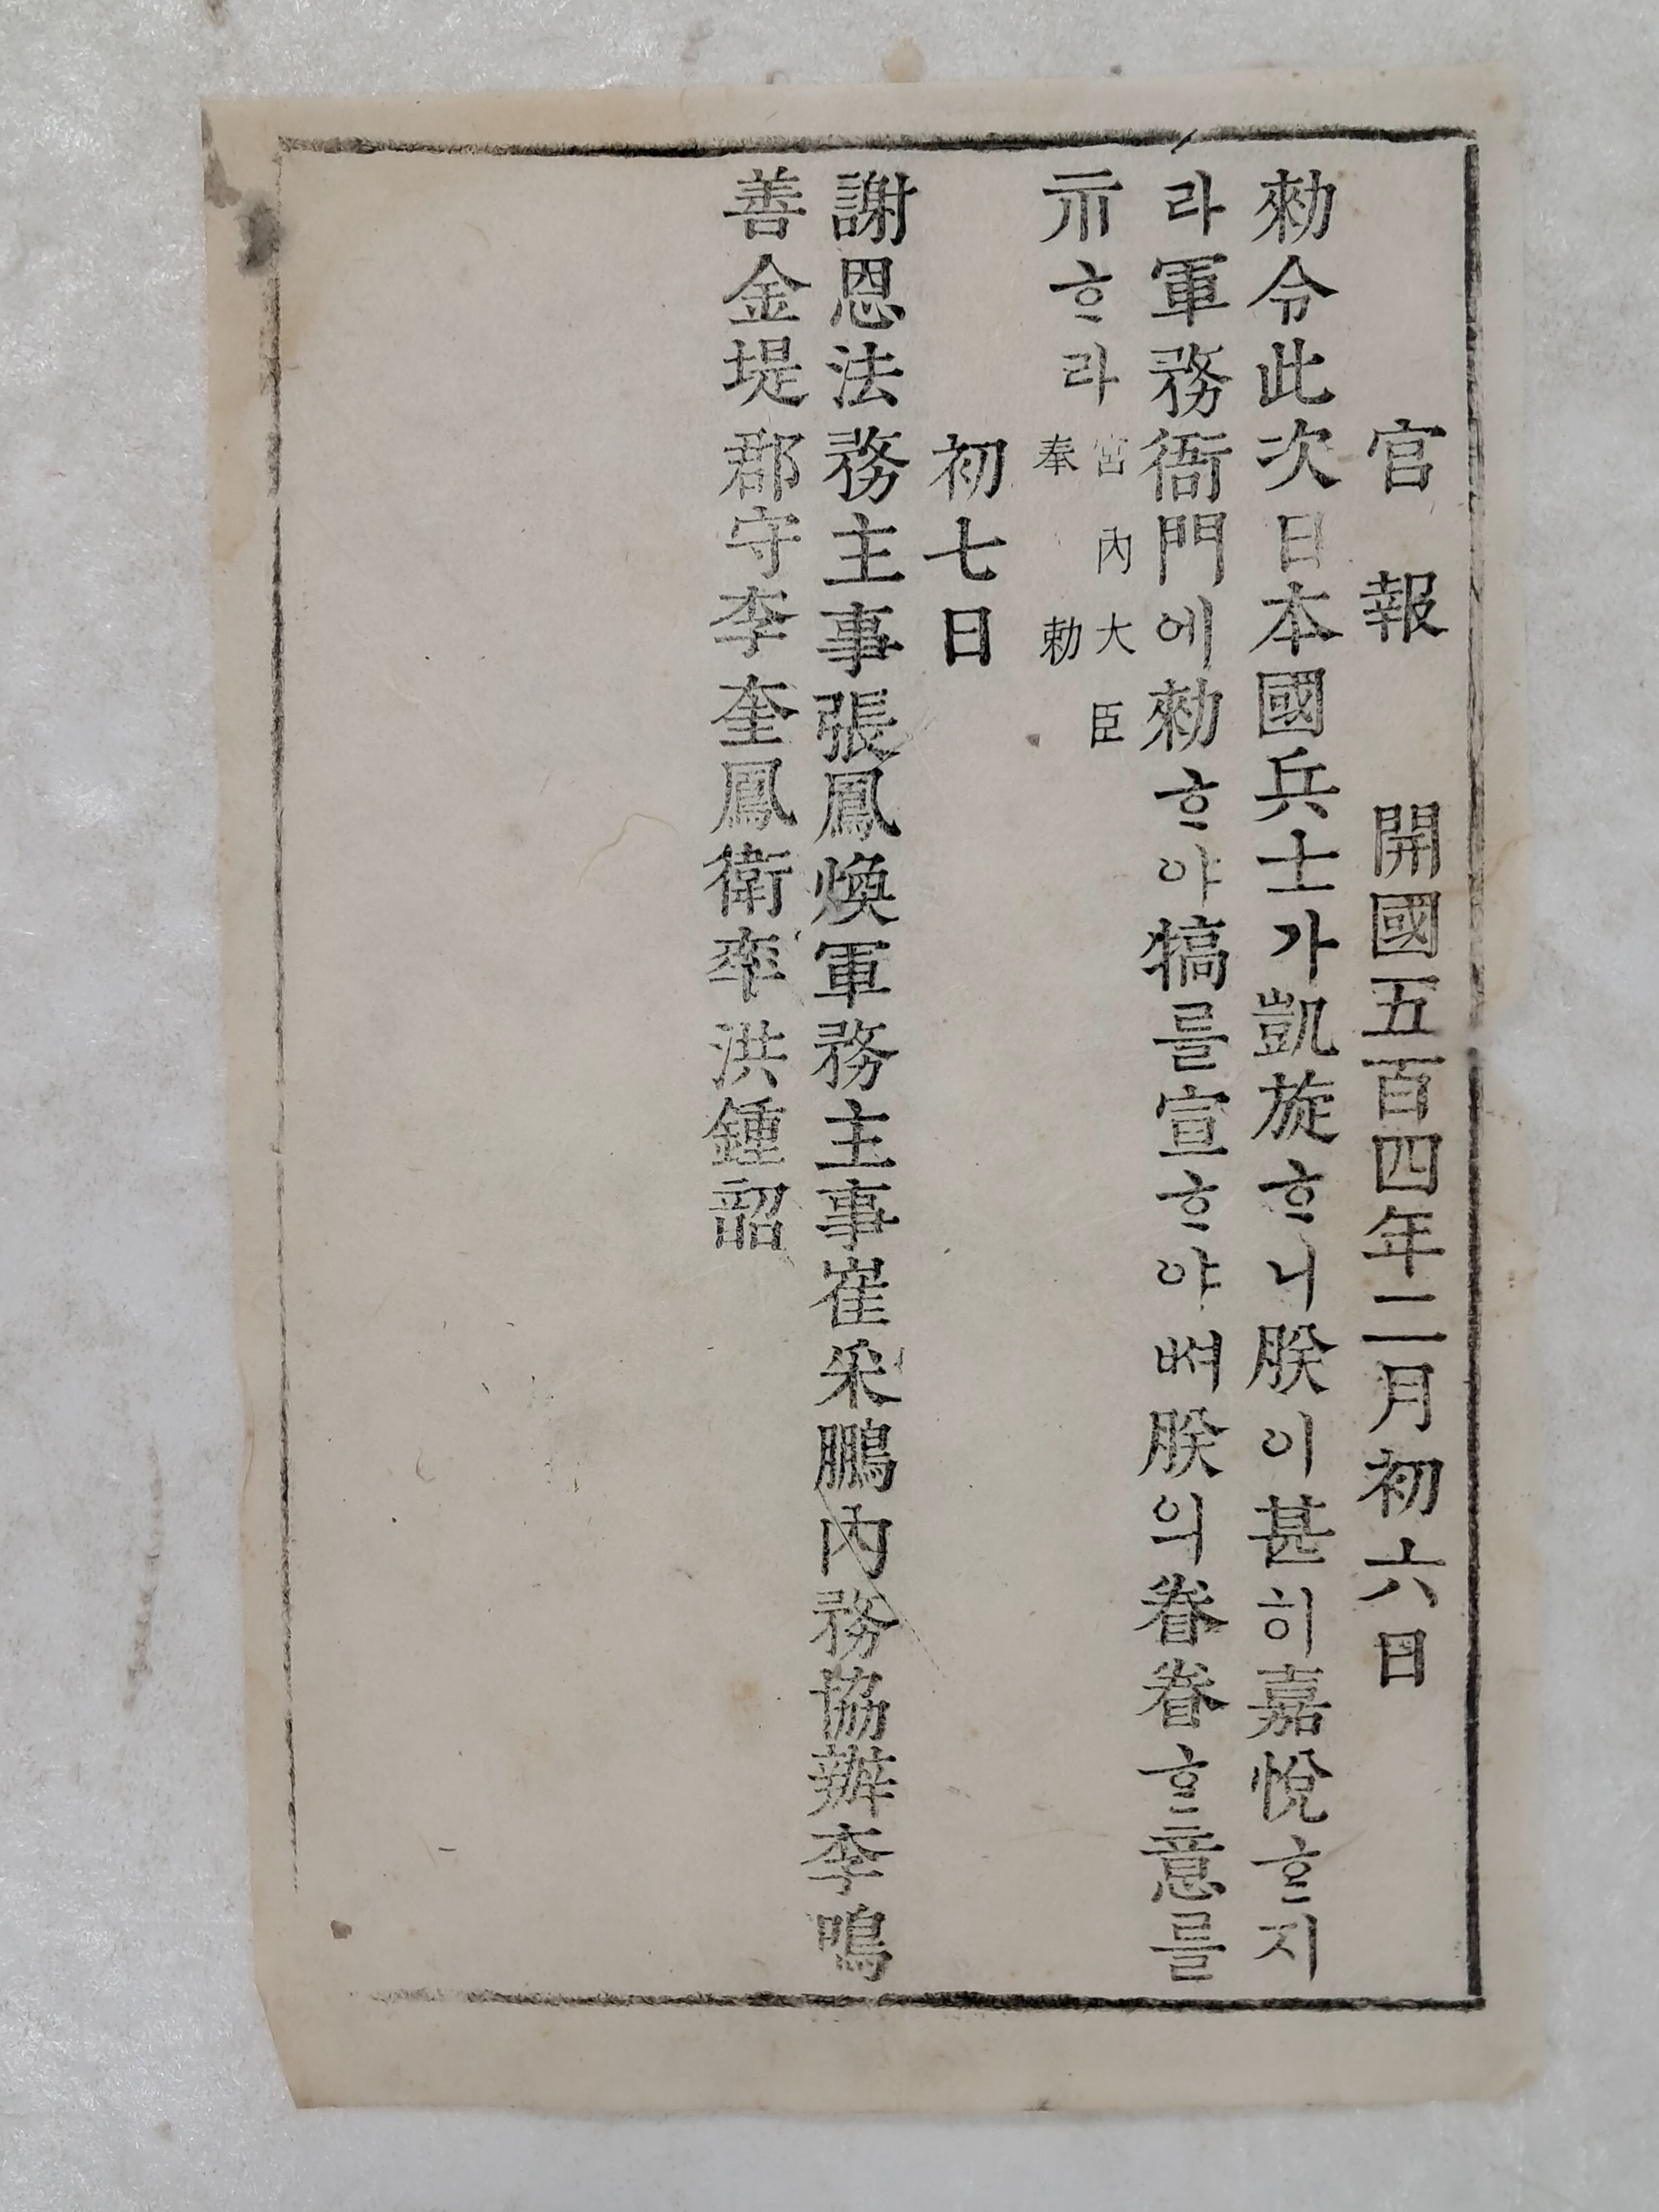 官報 開國五百四年二月初六日
勑令此次日本國兵士가凱旋ᄒᆞ니朕이甚히嘉悅ᄒᆞ지
라軍務衙門에勑ᄒᆞ야犒를宣ᄒᆞ야ᄡᅥ朕의眷眷ᄒᆞᆫ意를
示ᄒᆞ라
宮內大臣
奉勅
初七日
謝恩法務主事張鳳煥軍務主事崔采鵬內務協辦李鳴
善金堤郡守李奎鳳衛率洪鍾韶